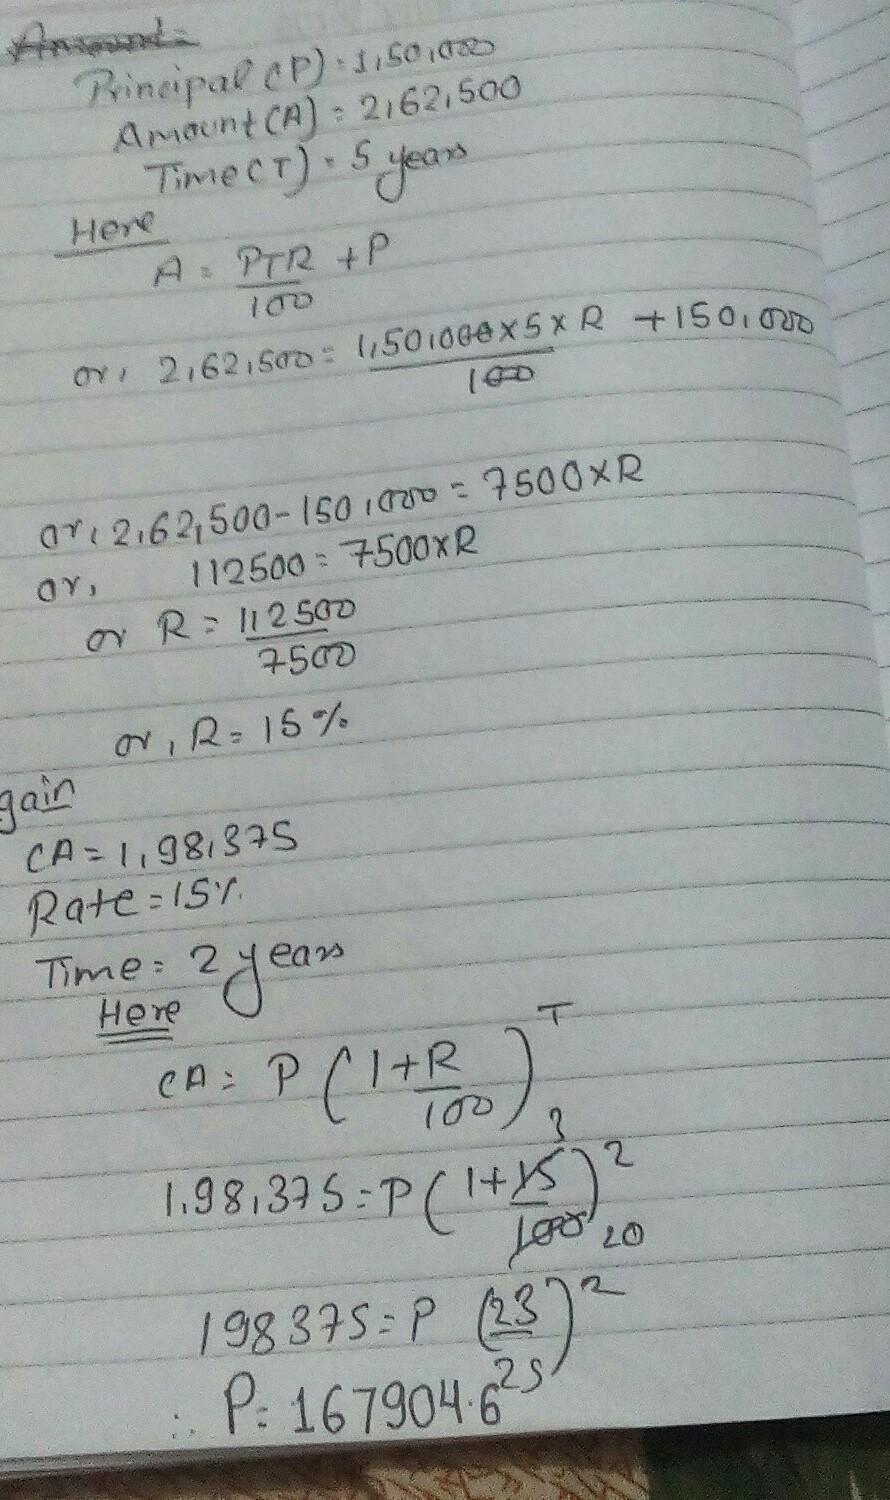 Principal (P) = 1,50,000
Amount (A) = 2,62,500
Time (T) = 5 years
Here
A = PTR/100 + P
or, 2,62,500 = 1,50,000×5×R/100 + 150,000
or, 2,62,500 - 150,000 = 7500×R
or, 112500 = 7500×R
or R = 112500/7500
or, R = 15%
gain
CA = 1,98,375
Rate = 15%
Time = 2 years
Here
CA = P (1+R/100)^T
1,98,375 = P (1+15/100)^2 3 20
198375 = P (23/25)^2
∴ P = 167904.6